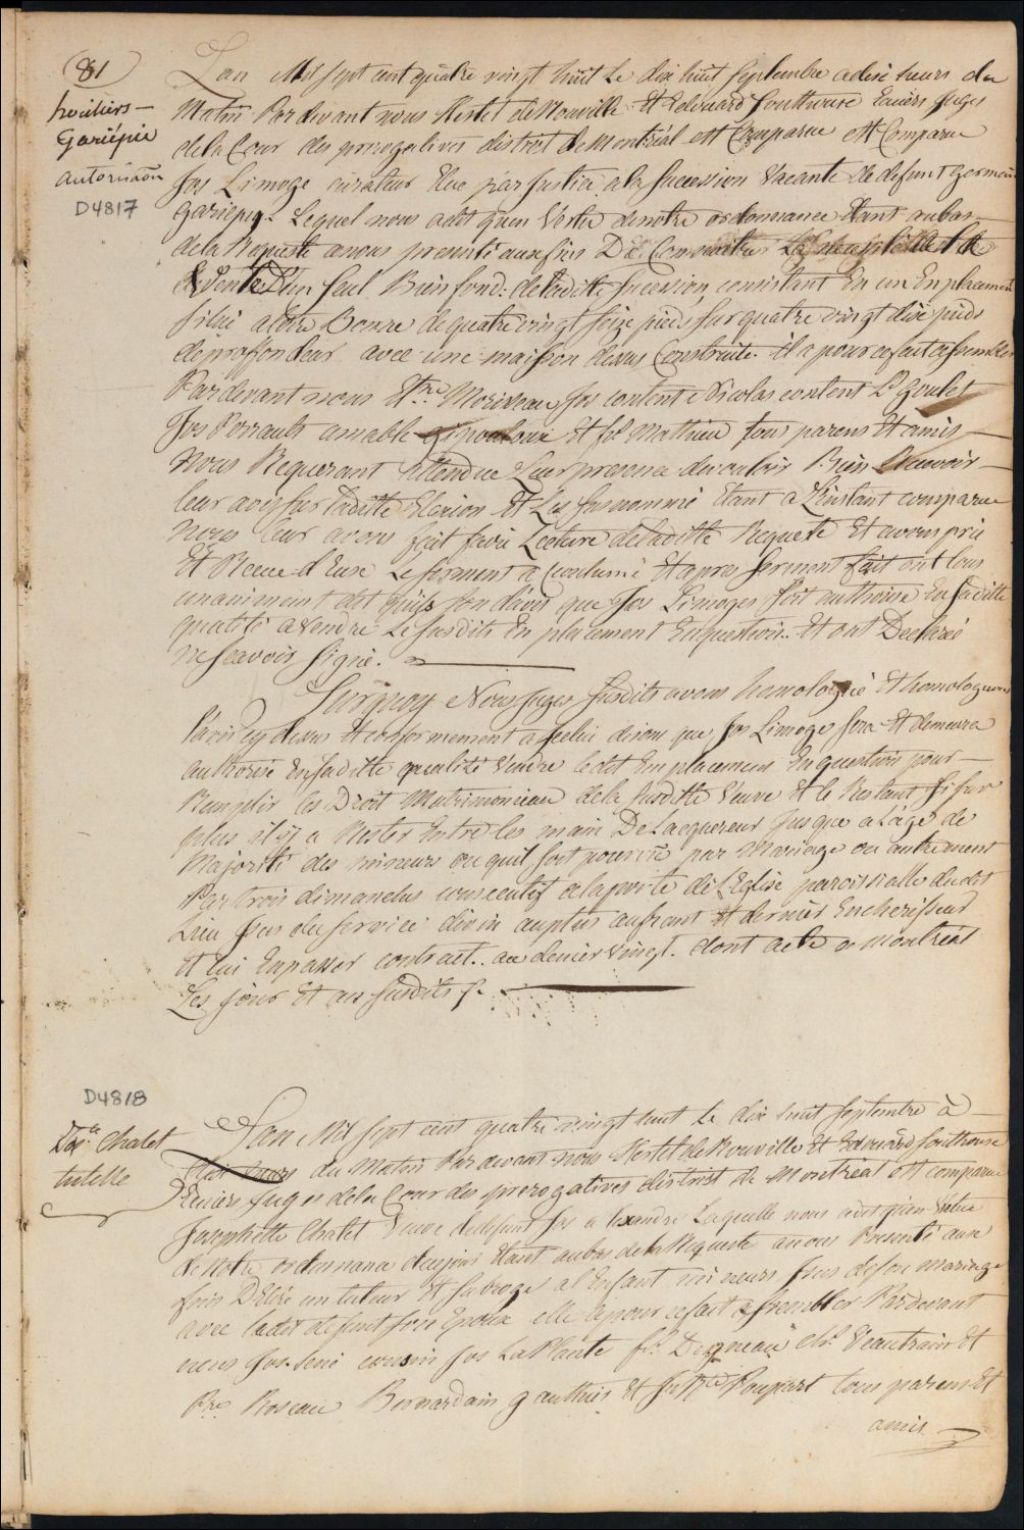 (81)
heritiers —
Gariépie
autorisation
D4817
Lan Mil sept cent quatre vingt huit Le dix huit Septembre a dix heurs du
Matin Par devant nous Hertel de Rouville Et Edouard Southouse Ecuiers Juges
de la Cour des prerogatives district de Montréal est Comparu est Comparu
Jos Limoge curateur Elue par Justice a la Sucession Vacante de defunt Germain
Gariepy. Lequel nous a dit quen Vertu de notre ordonnance Etant au bas —
de la Requete a nous presenté aux fins De
Vente d'un seul Bien fond: de laditte Sucession, consistant En un Emplacement
situé a Borne de quatre vingt seize pieds sur quatre vingt dix pieds
de proffondeur avec une maison dessus Construite. il a pour ce fait assembler
Par devant nous Moriseau Jos content Nicolas content Ls Goulet
Jos Perrault amable Et Jos Mathieu tous parens Et amis —
Nous Requerant Attendue Leur presence de vouloir Bien Recevoir —
leur avis sur laditte Election Et Les susnommé Etant a L'instant comparue
Nous leur avons fait faire Lecture de laditte Requete Et avons pris
Et Recue d'Eux Le serment a Coutumé Et apres serment fait ont tous
unanimement dit quils son d'avis que Jos Limoges soit authorisé En saditte
qualité a Vendre Le susdits En placement En question. Et ont Declaré
ne scavoir signé.
Surquoy Nous Juges susdits avons homologué Et homologuons
l'avis cy dessus Et conformement a Icelui disons que Jos Limoge sera Et demeura
authorisé En saditte qualité Vendre ledit Emplacement En question pour —
Remplir les Droit Matrimoniaux de la susditte Veuve Et le Restant si sur
plus il y a Rester Entre les main De Lacquereur Jusque a L'age de
Majorité des mineurs ou quil soit pourvû par Mariage ou autrement
Par trois dimanches consecutif a la porte de L'Eglise paroissialle dudit
Lieu Issu du service divin au plus aufrant Et dernier Encherisseur
Et lui En passer contract. au denier vingt. dont acte a montréal
Les jour Et an susdits
D4818
Chalet
tutelle
Lan Mil sept cent quatre vingt huit le dix huit Septembre à —
heurs du Matin Par devant nous Hertel de Rouville Et Edouard Southouse
Ecuiers Juges de la Cour des prerogatives district de Montréal est comparue
Josephette Chalet Veuve de defunt Jos alexandre Laquelle nous a dit quen Vertue
de Notre ordonnance de ce jour Etant au bas de la Requete a nous Presenté aux
fins D'Elire un tuteur Et subrogé al Enfant mineurs Issus de son mariage
avec ledit defunt son Epoux elle a pour ce fait assembler Par devant
nous Jos. cousin Jos La Plante Veautrain Et
Roseau Bernardain gauthier Et Poupart tous parens Et
amis